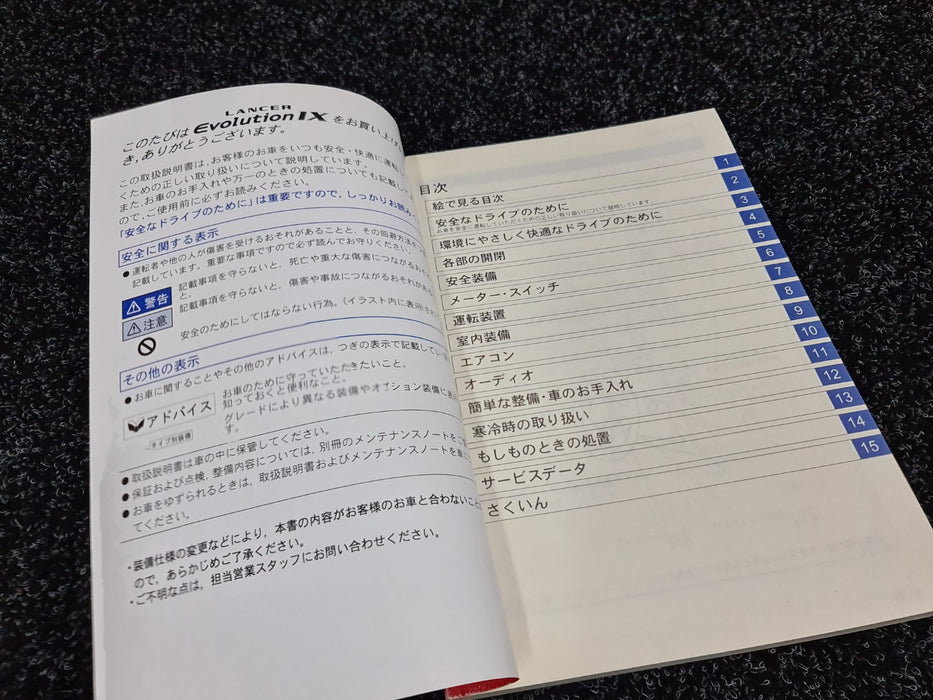 LANCER
このたびは Evolution IX をお買い上げ
き, ありがとうございます。
この取扱説明書は, お客様のお車をいつも安全・快適に運転し
くための正しい取り扱いについて説明しています。
また, お車のお手入れや万一のときの処置についても記載して
ので, ご使用前に必ずお読みください。
「安全なドライブのために」は重要ですので, しっかりお読み
安全に関する表示
●運転者や他の人が傷害を受けるおそれがあることと, その回避方法を
記載しています。重要な事項ですので必ず読んでお守りください。
警告
記載事項を守らないと, 死亡や重大な傷害につながるおそ
と。
注意
記載事項を守らないと, 傷害や事故につながるおそれが
安全のためにしてはならない行為。(イラスト内に表示
その他の表示
●お車に関することやその他のアドバイスは, つぎの表示で記載してい
アドバイス
お車のために守っていただきたいこと。
知っておくと便利なこと。
タイプ別装備
グレードにより異なる装備やオプション装備に
す。
●取扱説明書は車の中に保管してください。
●保証および点検, 整備内容については, 別冊のメンテナンスノートをご
●お車をゆずられるときは, 取扱説明書およびメンテナンスノートを車に
てください。
・装備仕様の変更などにより, 本書の内容がお客様のお車と合わないこと
ので, あらかじめご了承ください。
・ご不明な点は, 担当営業スタッフにお問い合わせください。
目次
絵で見る目次 1
安全なドライブのために 2
お車を安全に運転していただくための正しい取り扱いについて説明しています。
環境にやさしく快適なドライブのために 3
各部の開閉 4
安全装備 5
メーター・スイッチ 6
運転装置 7
室内装備 8
エアコン 9
オーディオ 10
簡単な整備・車のお手入れ 11
寒冷時の取り扱い 12
もしものときの処置 13
サービスデータ 14
さくいん 15